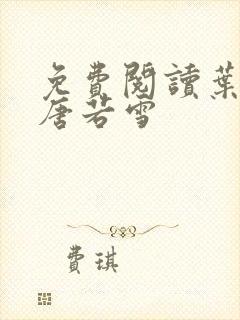 免費閱讀葉
唐若雪
費琪